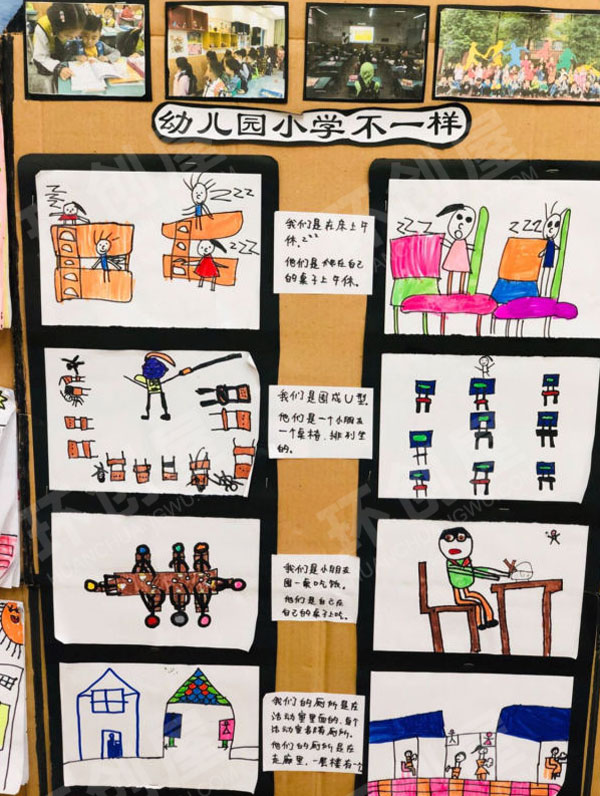 幼儿园小学不一样
zzz
zzz
zzz
zzz
我们是在床上午
休.zz
他们是趴在自己
的桌子上午休。
zzz
zzz
我们是围成U型.
他们是一个小朋友
一个桌椅.排列坐
的.
我们是小朋友
围一桌吃饭.
他们是自己在
自己的桌子上吃.
我们的厕所是在
活动室里面的.每个
活动室都有厕所.
他们的厕所是在
走廊里.一层楼有一个